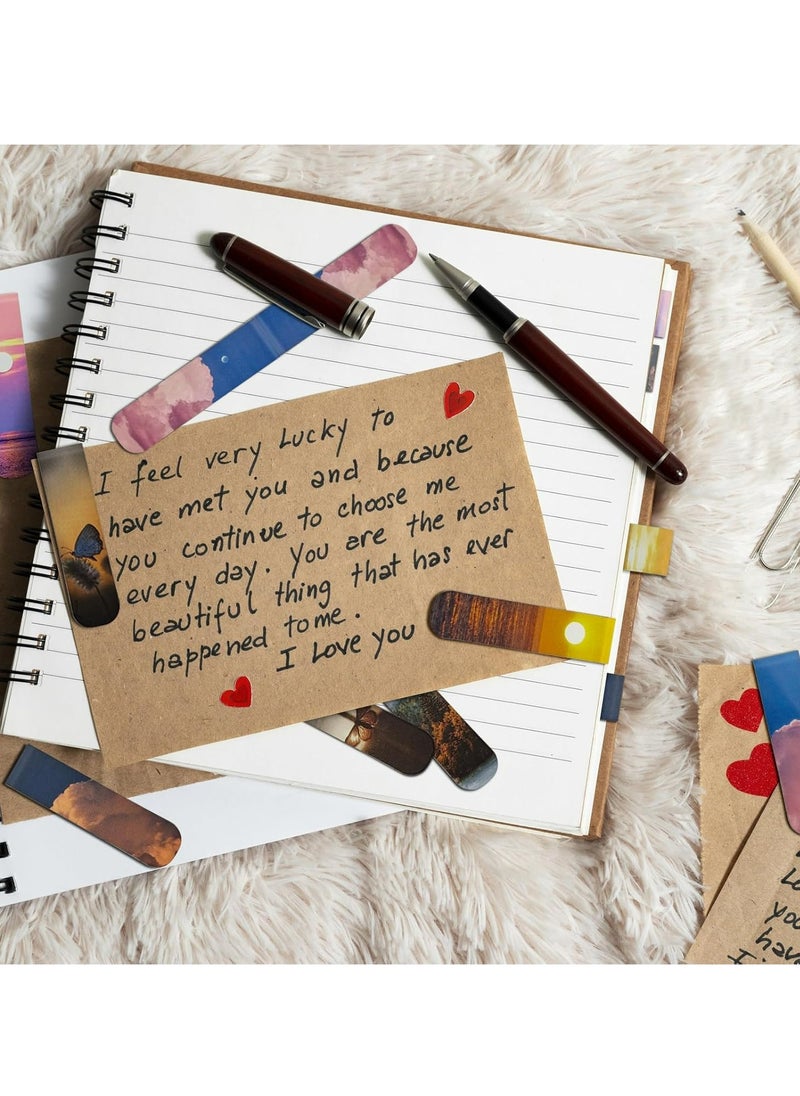 I feel very Lucky to
have met you and because
you continue to choose me
every day. You are the most
beautiful thing that has ever
happened to me.
I Love you
you